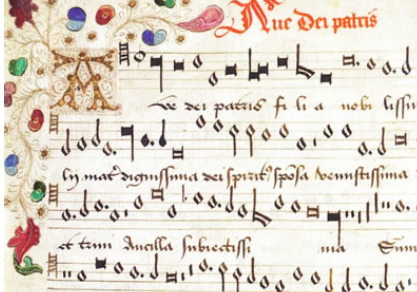 Aue Dei patris
Ave dei patris fi li a nobi lissi
lij mat̉ dignissima dei spirit⁹ sposa venustissima
et trini Ancilla subiectissi ma Sum